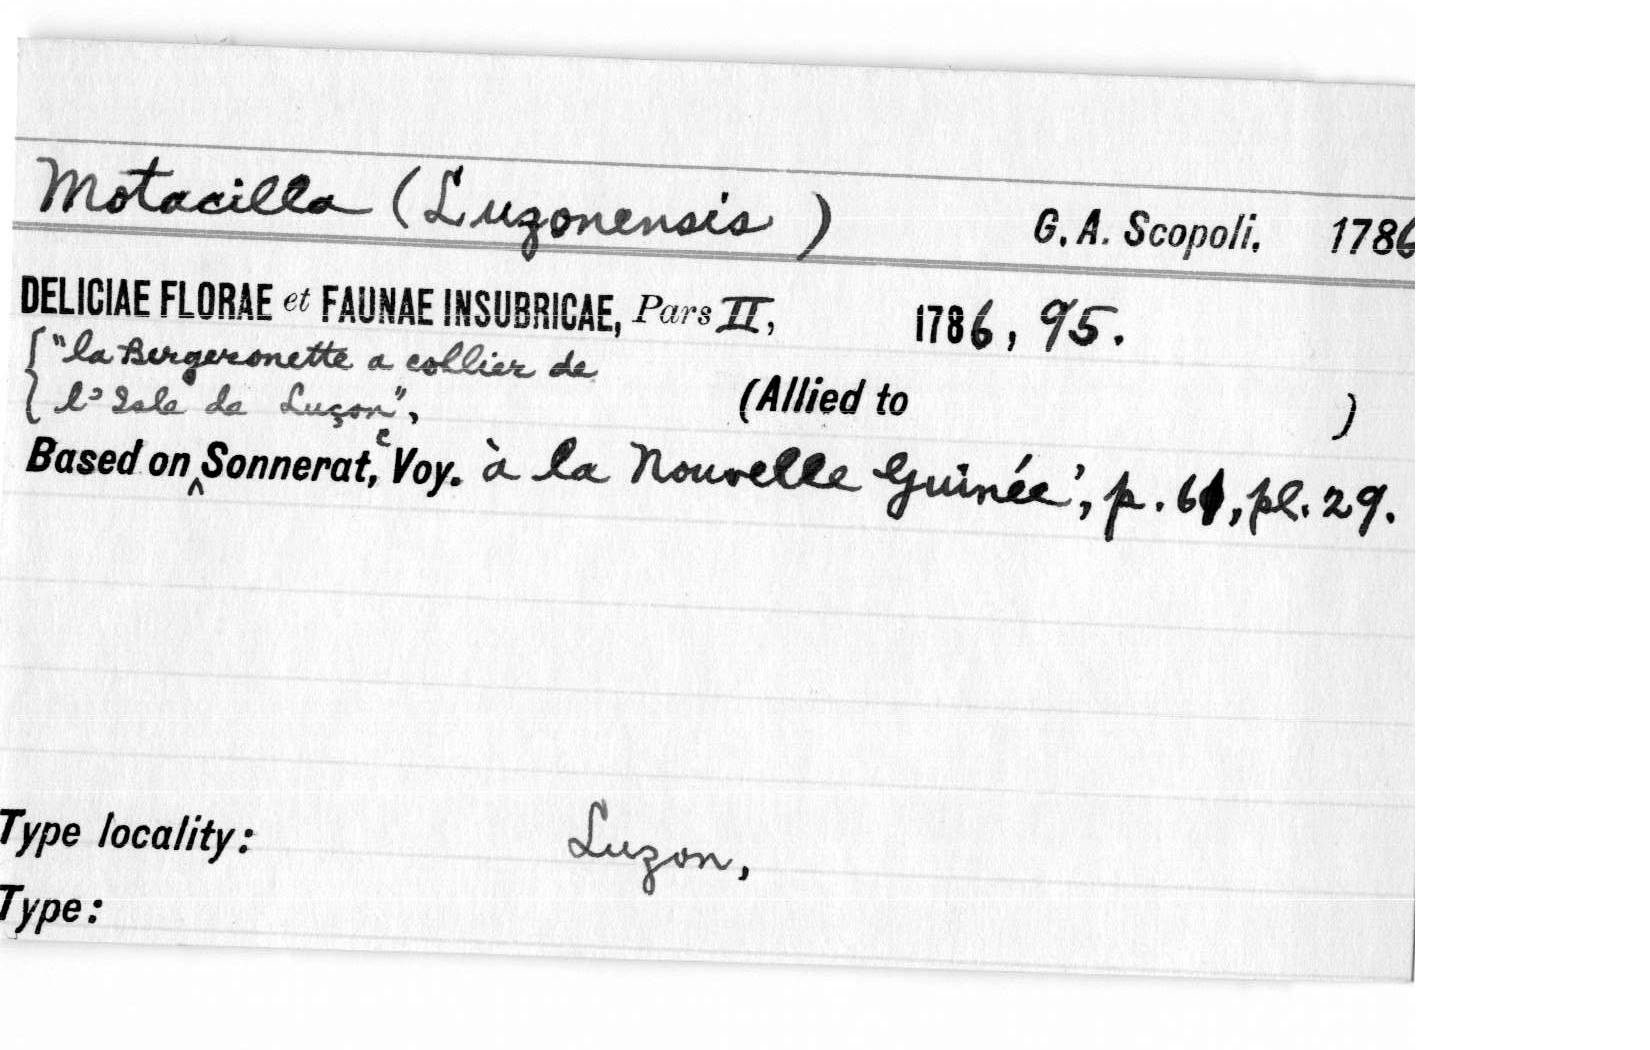 Motacilla (Luzonensis) G. A. Scopoli. 1786
DELICIAE FLORAE et FAUNAE INSUBRICAE, Pars II, 1786, 95.
{"la Bergeronette a collier de
l'Isle de Luçon", (Allied to )
Based on ^ Sonnerat, 'Voy. à la Nouvelle Guinée', p. 61, pl. 29.
Type locality: Luzon,
Type: